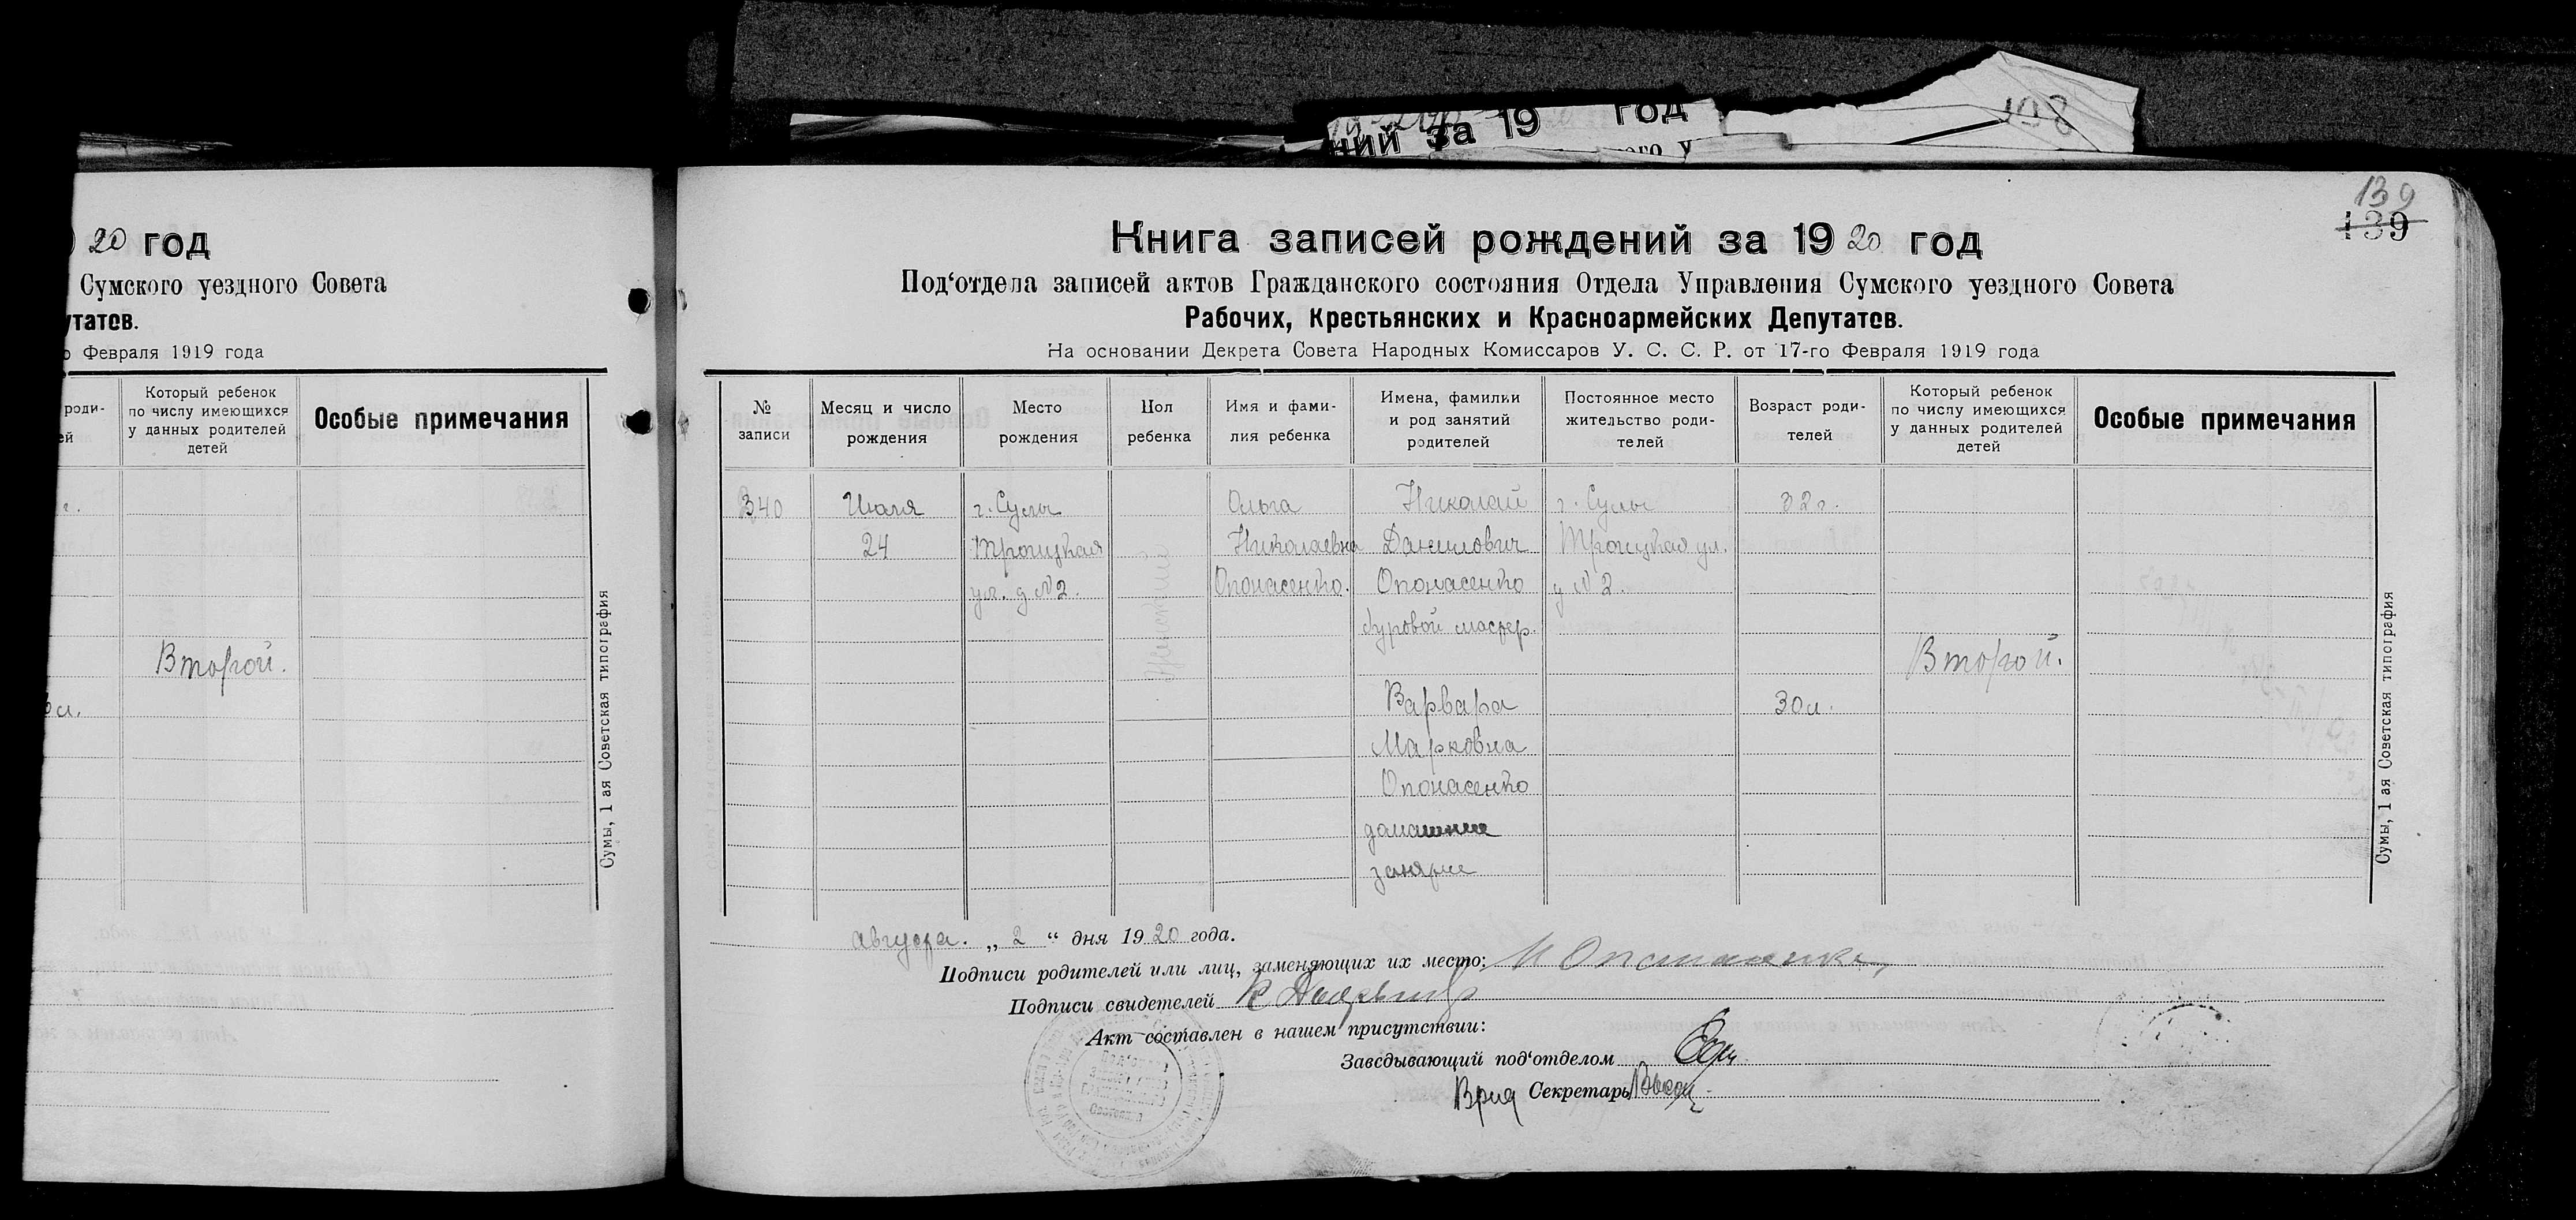 год
ний за 19
ого у
198
20 год
Сумского уездного Совета
утатов.
о Февраля 1919 года
роди-
ей
Который ребенок
по числу имеющихся
у данных родителей
детей
Особые примечания
г.
Второй.
л.
Сумы, 1 ая Советская типография
139
139
Книга записей рождений за 1920 год
Под‘отдела записей актов Гражданского состояния Отдела Управления Сумского уездного Совета
Рабочих, Крестьянских и Красноармейских Депутатов.
На основании Декрета Совета Народных Комиссаров У. С. С. Р. от 17-го Февраля 1919 года
№
записи
Месяц и число
рождения
Место
рождения
Пол
ребенка
Имя и фами-
лия ребенка
Имена, фамилии
и род занятий
родителей
Постоянное место
жительство роди-
телей
Возраст роди-
телей
Который ребенок
по числу имеющихся
у данных родителей
детей
Особые примечания
340
Июля
24
г. Сумы
Троицкая
ул. д №2.
Женский
Ольга
Николаевна
Опонасенко.
Николай
Данилович
Опонасенко
буровой мастер.
Варвара
Марковна
Опонасенко
домашние
занятие
г. Сумы
Троицкая ул.
№2.
32 г.
30 л.
Второй.
Сумы, 1 ая Советская типография
Августа. „ 2 “ дня 1920 года.
Подписи родителей или лиц, заменяющих их место:
Подписи свидетелей
Акт составлен в нашем присутствии:
Заведывающий под‘отделом
Врид Секретарь